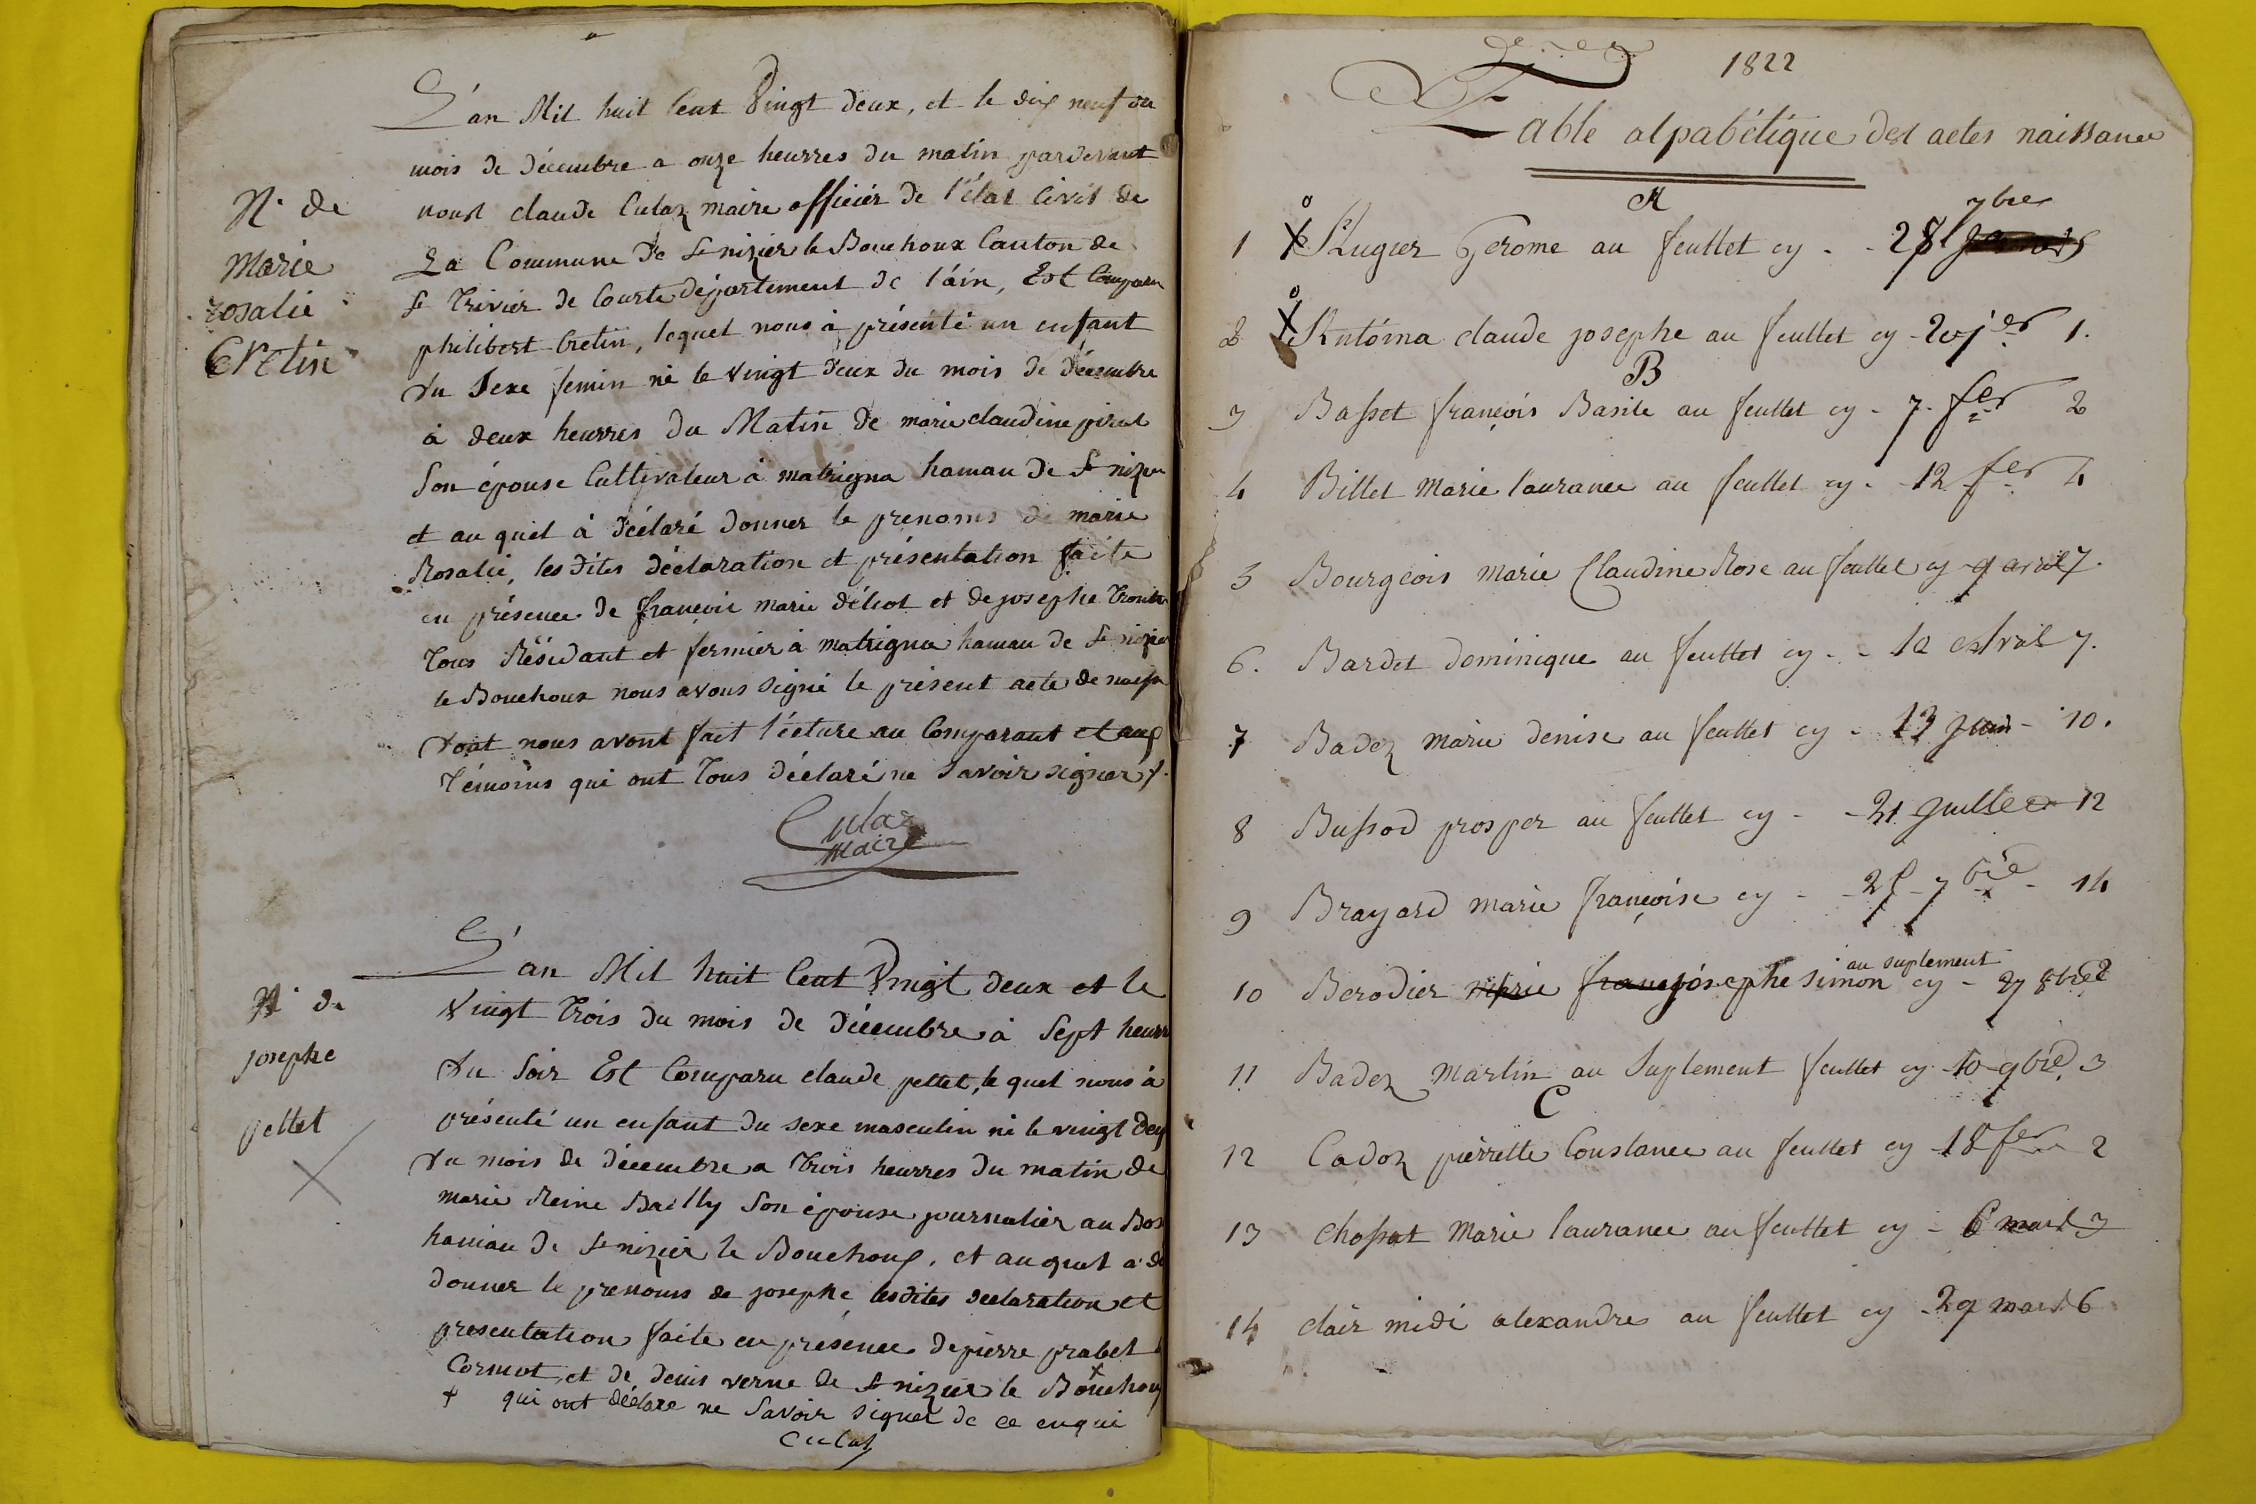 L'an Mil huit Cent Vingt deux, et le dix neuf du
mois de décembre a onze heurres du matin pardevant
nous claude Culaz maire officier de l'état Civil de
La Commune de St nizier le Bouchoux Canton de
St Trivier de Courte département de l'ain, Est Comparu
philibert Cretin, lequel nous à présenté un enfant
du Sexe femin né le vingt deux du mois de décembre
à deux heurres du Matin de marie claudine pirat
Son épouse Cultivateur à matrigna hamau de St nizier
et au quel à déclaré donner le prenoms de marie
Rosalie, les dites déclaration et présentation faite
en présence de françois marie et de josephe
Tous Résidant et fermier à matrigna hamau de St nizier
le Bouchoux nous avons signé le présent acte de
dont nous avont fait l'écture au Comparant et aux
Témoins qui ont Tous déclaré ne Savoir signer
Culaz
Maire
N. de
Marie
rosalie
Cretin
L'an Mil huit Cent Vingt deux et le
vingt Trois du mois de décembre à Sept heurr
du Soir Est Comparu claude pettet, le quel nous à
présenté un enfant du sexe masculin né le vingt deux
du mois de décembre a trois heurres du matin de
marie Reine Bailly Son épouse journalier au Bos
hamau de St nizier le Bouchoux, et auquel a dé
donner le prenoms de josephe lesdites declaration et
presentation faite en presence de pierre prabel
Cormot, et de denis verne de St nizier le Bouchoux
+ qui ont déclare ne Savoir signer de ce enqui
Culaz
N. de
josephe
pettet
1822
Table alpabétique des actes naissance
A
1 Augier Gerome au feuillet cy - 28 7bre
2 Antoina claude josephe au feuillet cy - 20 jer 1.
B
3 Basset françois Basile au feuillet cy - 7. fer 2
4 Billet Marie laurance au feuillet cy - 12 fer 4
5 Bourgeois marie Claudine Rose au feuillet cy 9 avril 7.
6. Bardet dominique au feuillet cy - 12 Avril 7.
7 Badez marie denise au feuillet cy - 13 juin - 10.
8 Bussod prosper au feuillet cy - 21 juillet 12
9 Brayard marie françoise cy - 28 - 7bre - 14
10 Berodier marie franç josephe simon au suplement cy - 27 8bre 2
11 Badez Martin au Suplement feuillet cy 10 9bre. 3
C
12 Cadoz pierrette Constance au feuillet cy 18 fer 2
13 Chossat Marie laurance au feuillet cy - 6 mars 3
14 clair midi alexandre au feuillet cy - 29 mars 6